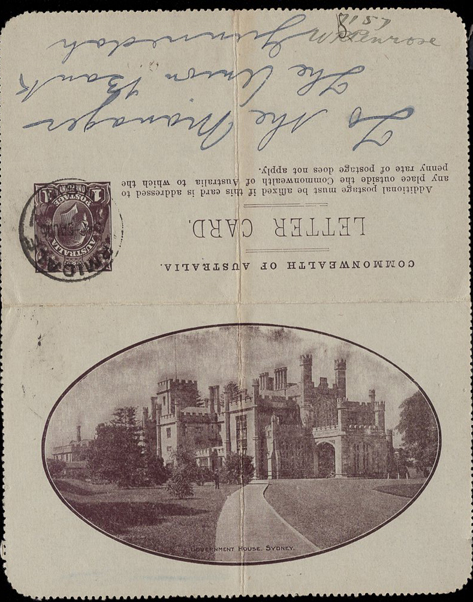 COMMONWEALTH OF AUSTRALIA.
LETTER CARD.
Additional postage must be affixed if this card is addressed to
any place outside the Commonwealth of Australia to which the
penny rate of postage does not apply.
AUSTRALIA
To the Manager
The Union Bank
Gunnedah
GOVERNMENT HOUSE, SYDNEY.